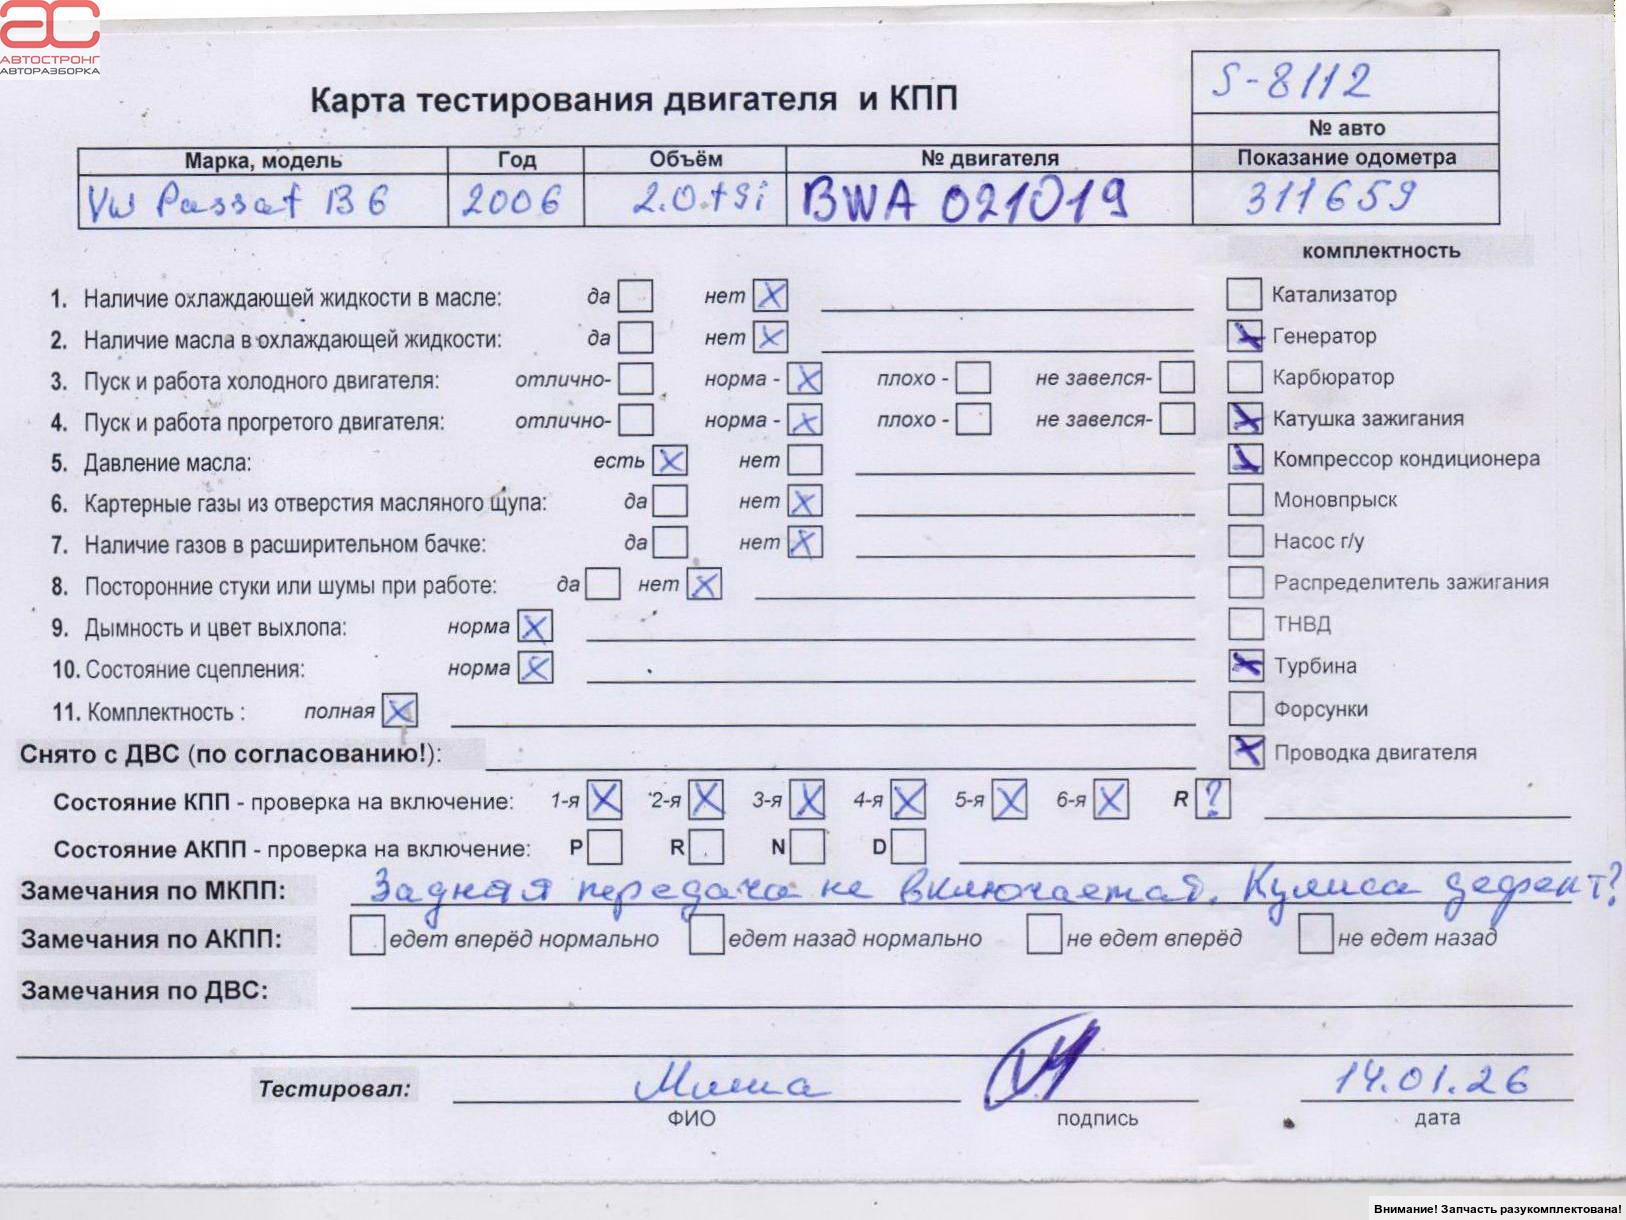 АВТОСТРОНГ
АВТОРАЗБОРКА
S-8112
Карта тестирования двигателя и КПП
№ авто
Марка, модель Год Объём № двигателя Показание одометра
VW Passat B6 2006 2.0.tsi BWA 021019 311659
комплектность
1. Наличие охлаждающей жидкости в масле: да нет X Катализатор
2. Наличие масла в охлаждающей жидкости: да нет X Генератор
3. Пуск и работа холодного двигателя: отлично- норма - X плохо - не завелся- Карбюратор
4. Пуск и работа прогретого двигателя: отлично- норма - X плохо - не завелся- Катушка зажигания
5. Давление масла: есть X нет Компрессор кондиционера
6. Картерные газы из отверстия масляного щупа: да нет X Моновпрыск
7. Наличие газов в расширительном бачке: да нет X Насос г/у
8. Посторонние стуки или шумы при работе: да нет X Распределитель зажигания
9. Дымность и цвет выхлопа: норма X ТНВД
10. Состояние сцепления: норма X Турбина
11. Комплектность : полная X Форсунки
Снято с ДВС (по согласованию!): Проводка двигателя
Состояние КПП - проверка на включение: 1-я X 2-я X 3-я X 4-я X 5-я X 6-я X R ?
Состояние АКПП - проверка на включение: P R N D
Замечания по МКПП: Задняя передача не включается. Кулиса дефект?
Замечания по АКПП: едет вперёд нормально едет назад нормально не едет вперёд не едет назад
Замечания по ДВС:
Тестировал: Миша 14.01.26
ФИО подпись дата
Внимание! Запчасть разукомплектована!